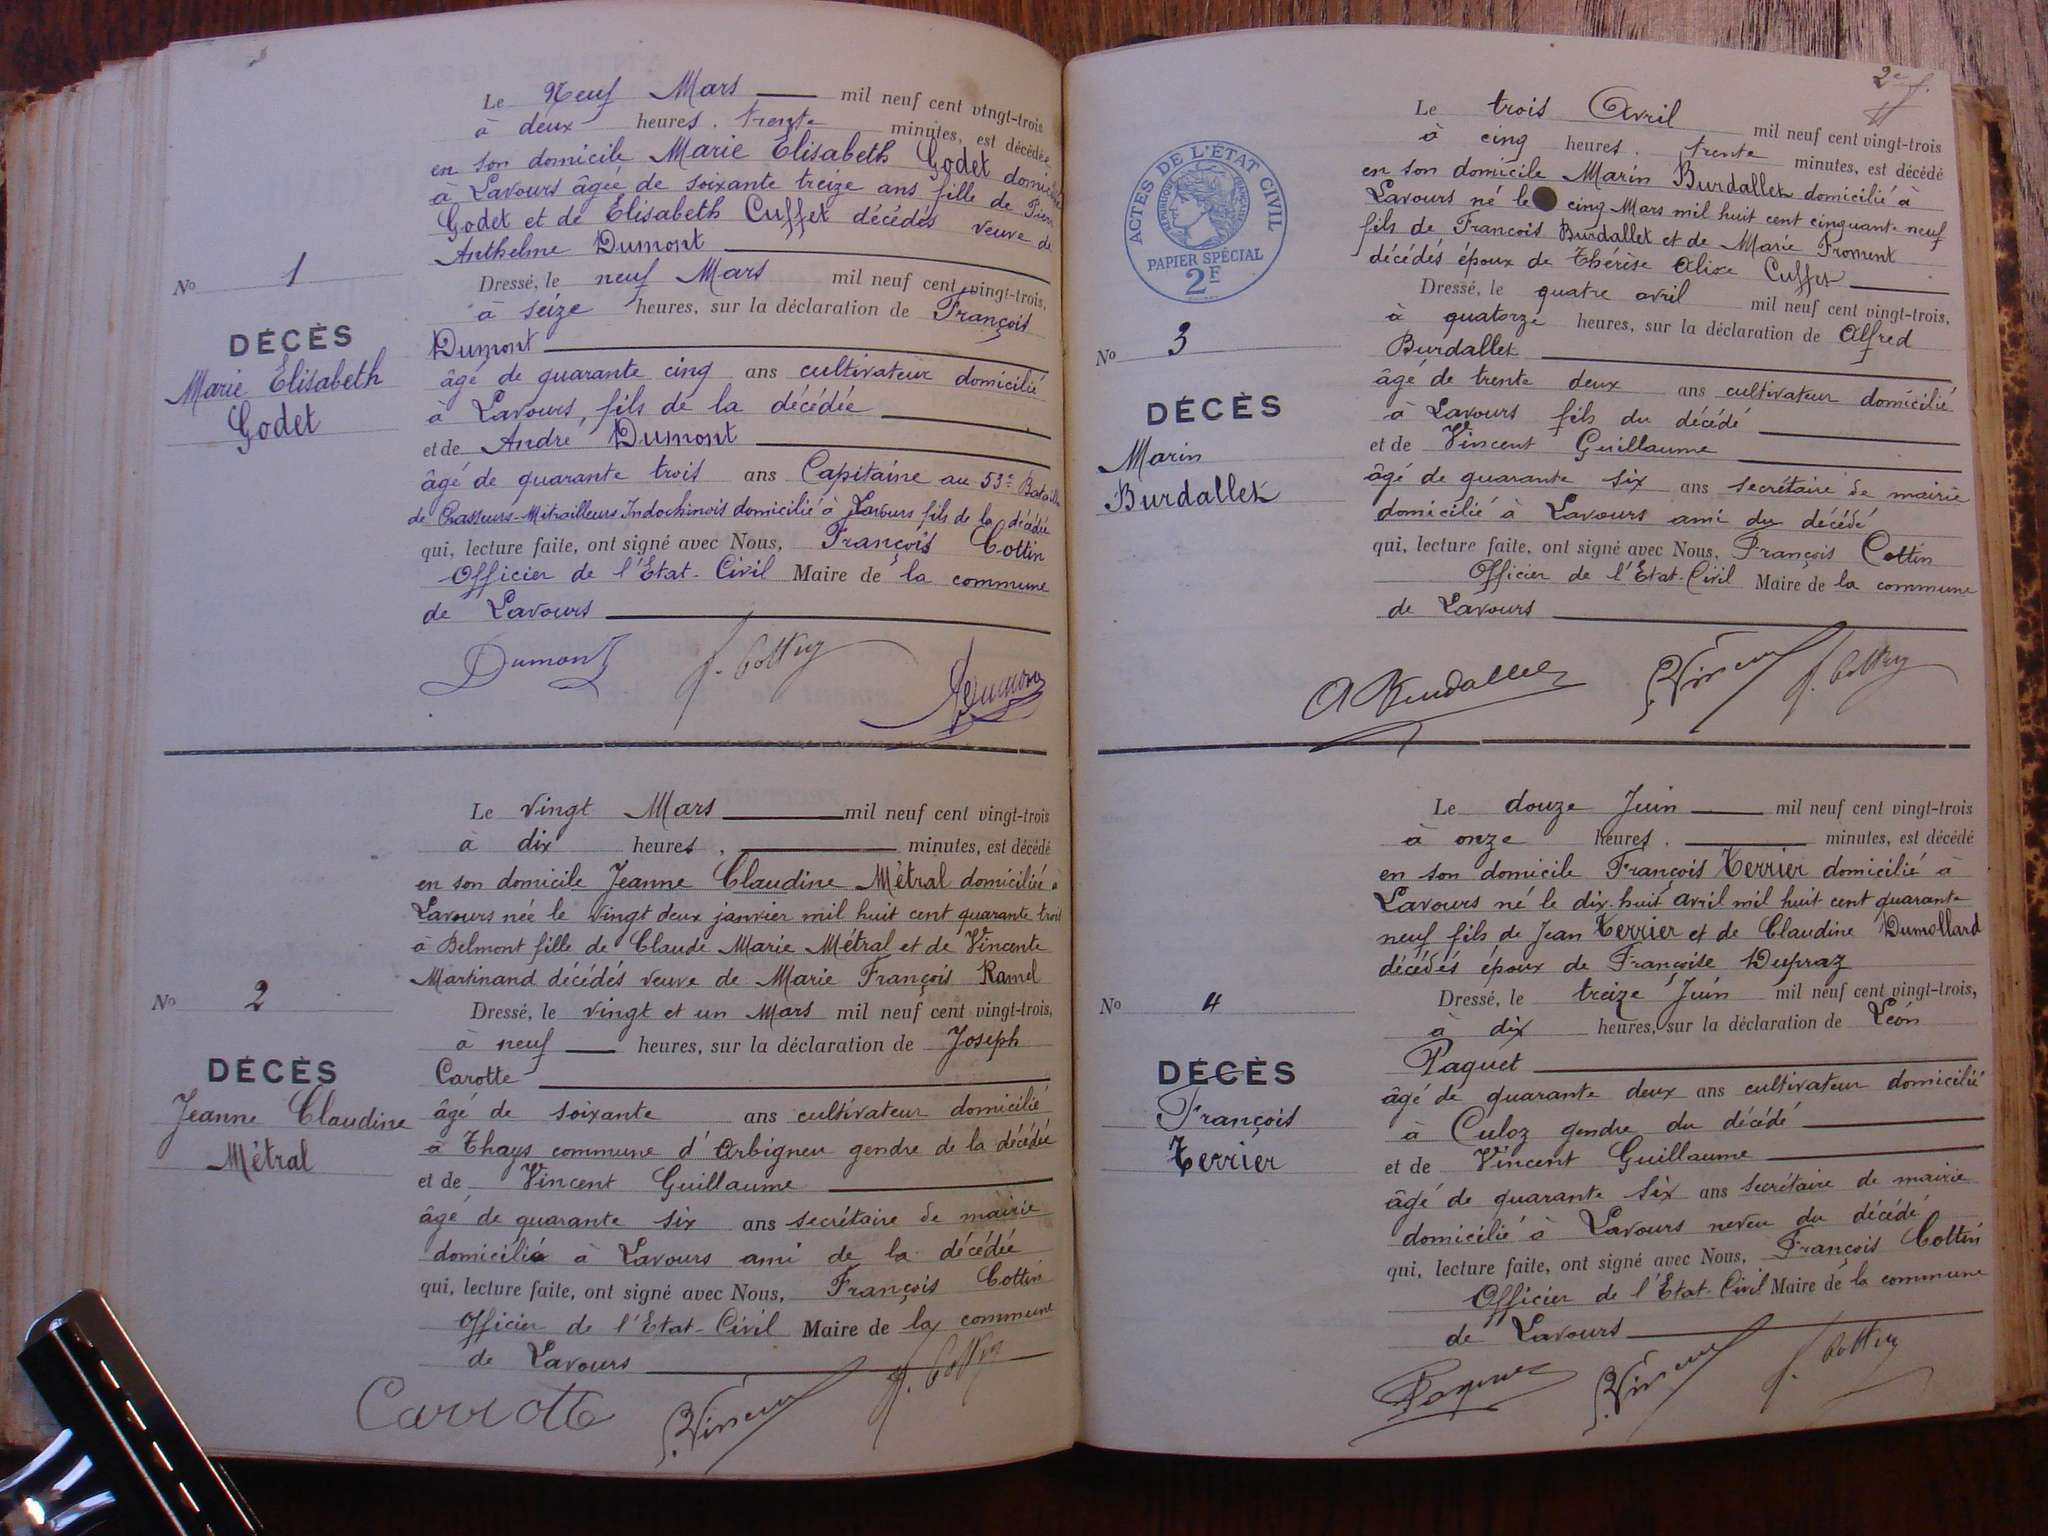 Le Neuf Mars mil neuf cent vingt-trois
à deux heures. trente minutes, est décédée
en son domicile Marie Elisabeth Godet domiciliée
à Lavours âgée de soixante treize ans fille de Pierre
Godet et de Elisabeth Cuffet décédés veuve de
Anthelme Dumont
No 1
Dressé, le neuf Mars mil neuf cent vingt-trois,
à seize heures, sur la déclaration de François
DÉCÈS
Marie Elisabeth
Godet
Dumont
âgé de quarante cinq ans cultivateur domicilié
à Lavours, fils de la décédée
et de André Dumont
âgé de quarante trois ans Capitaine au 53e
de Chasseurs-Mitrailleurs Indochinois domicilié à Lavours fils de la décédée
qui, lecture faite, ont signé avec Nous, François Cottin
Officier de l'Etat-Civil Maire de la commune
de Lavours
Dumont F. Cottin Dumont
Le vingt Mars mil neuf cent vingt-trois
à dix heures. minutes, est décédé
en son domicile Jeanne Claudine Métral domiciliée à
Lavours née le vingt deux janvier mil huit cent quarante trois
à Belmont fille de Claude Marie Métral et de Vincente
Martinand décédés veuve de Marie François Ramel
No 2
Dressé, le vingt et un Mars mil neuf cent vingt-trois,
à neuf heures, sur la déclaration de Joseph
DÉCÈS
Jeanne Claudine
Métral
Carotte
âgé de soixante ans cultivateur domicilié
à Thays commune d'Arbigneu gendre de la décédée
et de Vincent Guillaume
âgé de quarante six ans secrétaire de mairie
domicilié à Lavours ami de la décédée
qui, lecture faite, ont signé avec Nous, François Cottin
Officier de l'Etat-Civil Maire de la commune
de Lavours
Carrotte G. Vincent F. Cottin
2e f.
ACTES DE L'ÉTAT CIVIL
RÉPUBLIQUE FRANÇAISE
PAPIER SPÉCIAL
2F
Le trois Avril mil neuf cent vingt-trois
à cinq heures. trente minutes, est décédé
en son domicile Marin Burdallet domicilié à
Lavours né le cinq Mars mil huit cent cinquante neuf
fils de François Burdallet et de Marie Froment
décédés époux de Thérèse Alixe Cuffet
Dressé, le quatre avril mil neuf cent vingt-trois,
à quatorze heures, sur la déclaration de Alfred
No 3
DÉCÈS
Marin
Burdallet
Burdallet
âgé de trente deux ans cultivateur domicilié
à Lavours fils du décédé
et de Vincent Guillaume
âgé de quarante six ans secrétaire de mairie
domicilié à Lavours ami du décédé
qui, lecture faite, ont signé avec Nous, François Cottin
Officier de l'Etat-Civil Maire de la commune
de Lavours
A Burdallet G. Vincent F. Cottin
Le douze Juin mil neuf cent vingt-trois
à onze heures. minutes, est décédé
en son domicile François Terrier domicilié à
Lavours né le dix-huit avril mil huit cent quarante
neuf fils de Jean Terrier et de Claudine Dumollard
décédés époux de Françoise Dupraz
No 4
Dressé, le treize Juin mil neuf cent vingt-trois,
à dix heures, sur la déclaration de Léon
DÉCÈS
François
Terrier
Paquet
âgé de quarante deux ans cultivateur domicilié
à Culoz gendre du décédé
et de Vincent Guillaume
âgé de quarante six ans secrétaire de mairie
domicilié à Lavours neveu du décédé
qui, lecture faite, ont signé avec Nous, François Cottin
Officier de l'Etat-Civil Maire de la commune
de Lavours
Paquet G. Vincent F. Cottin